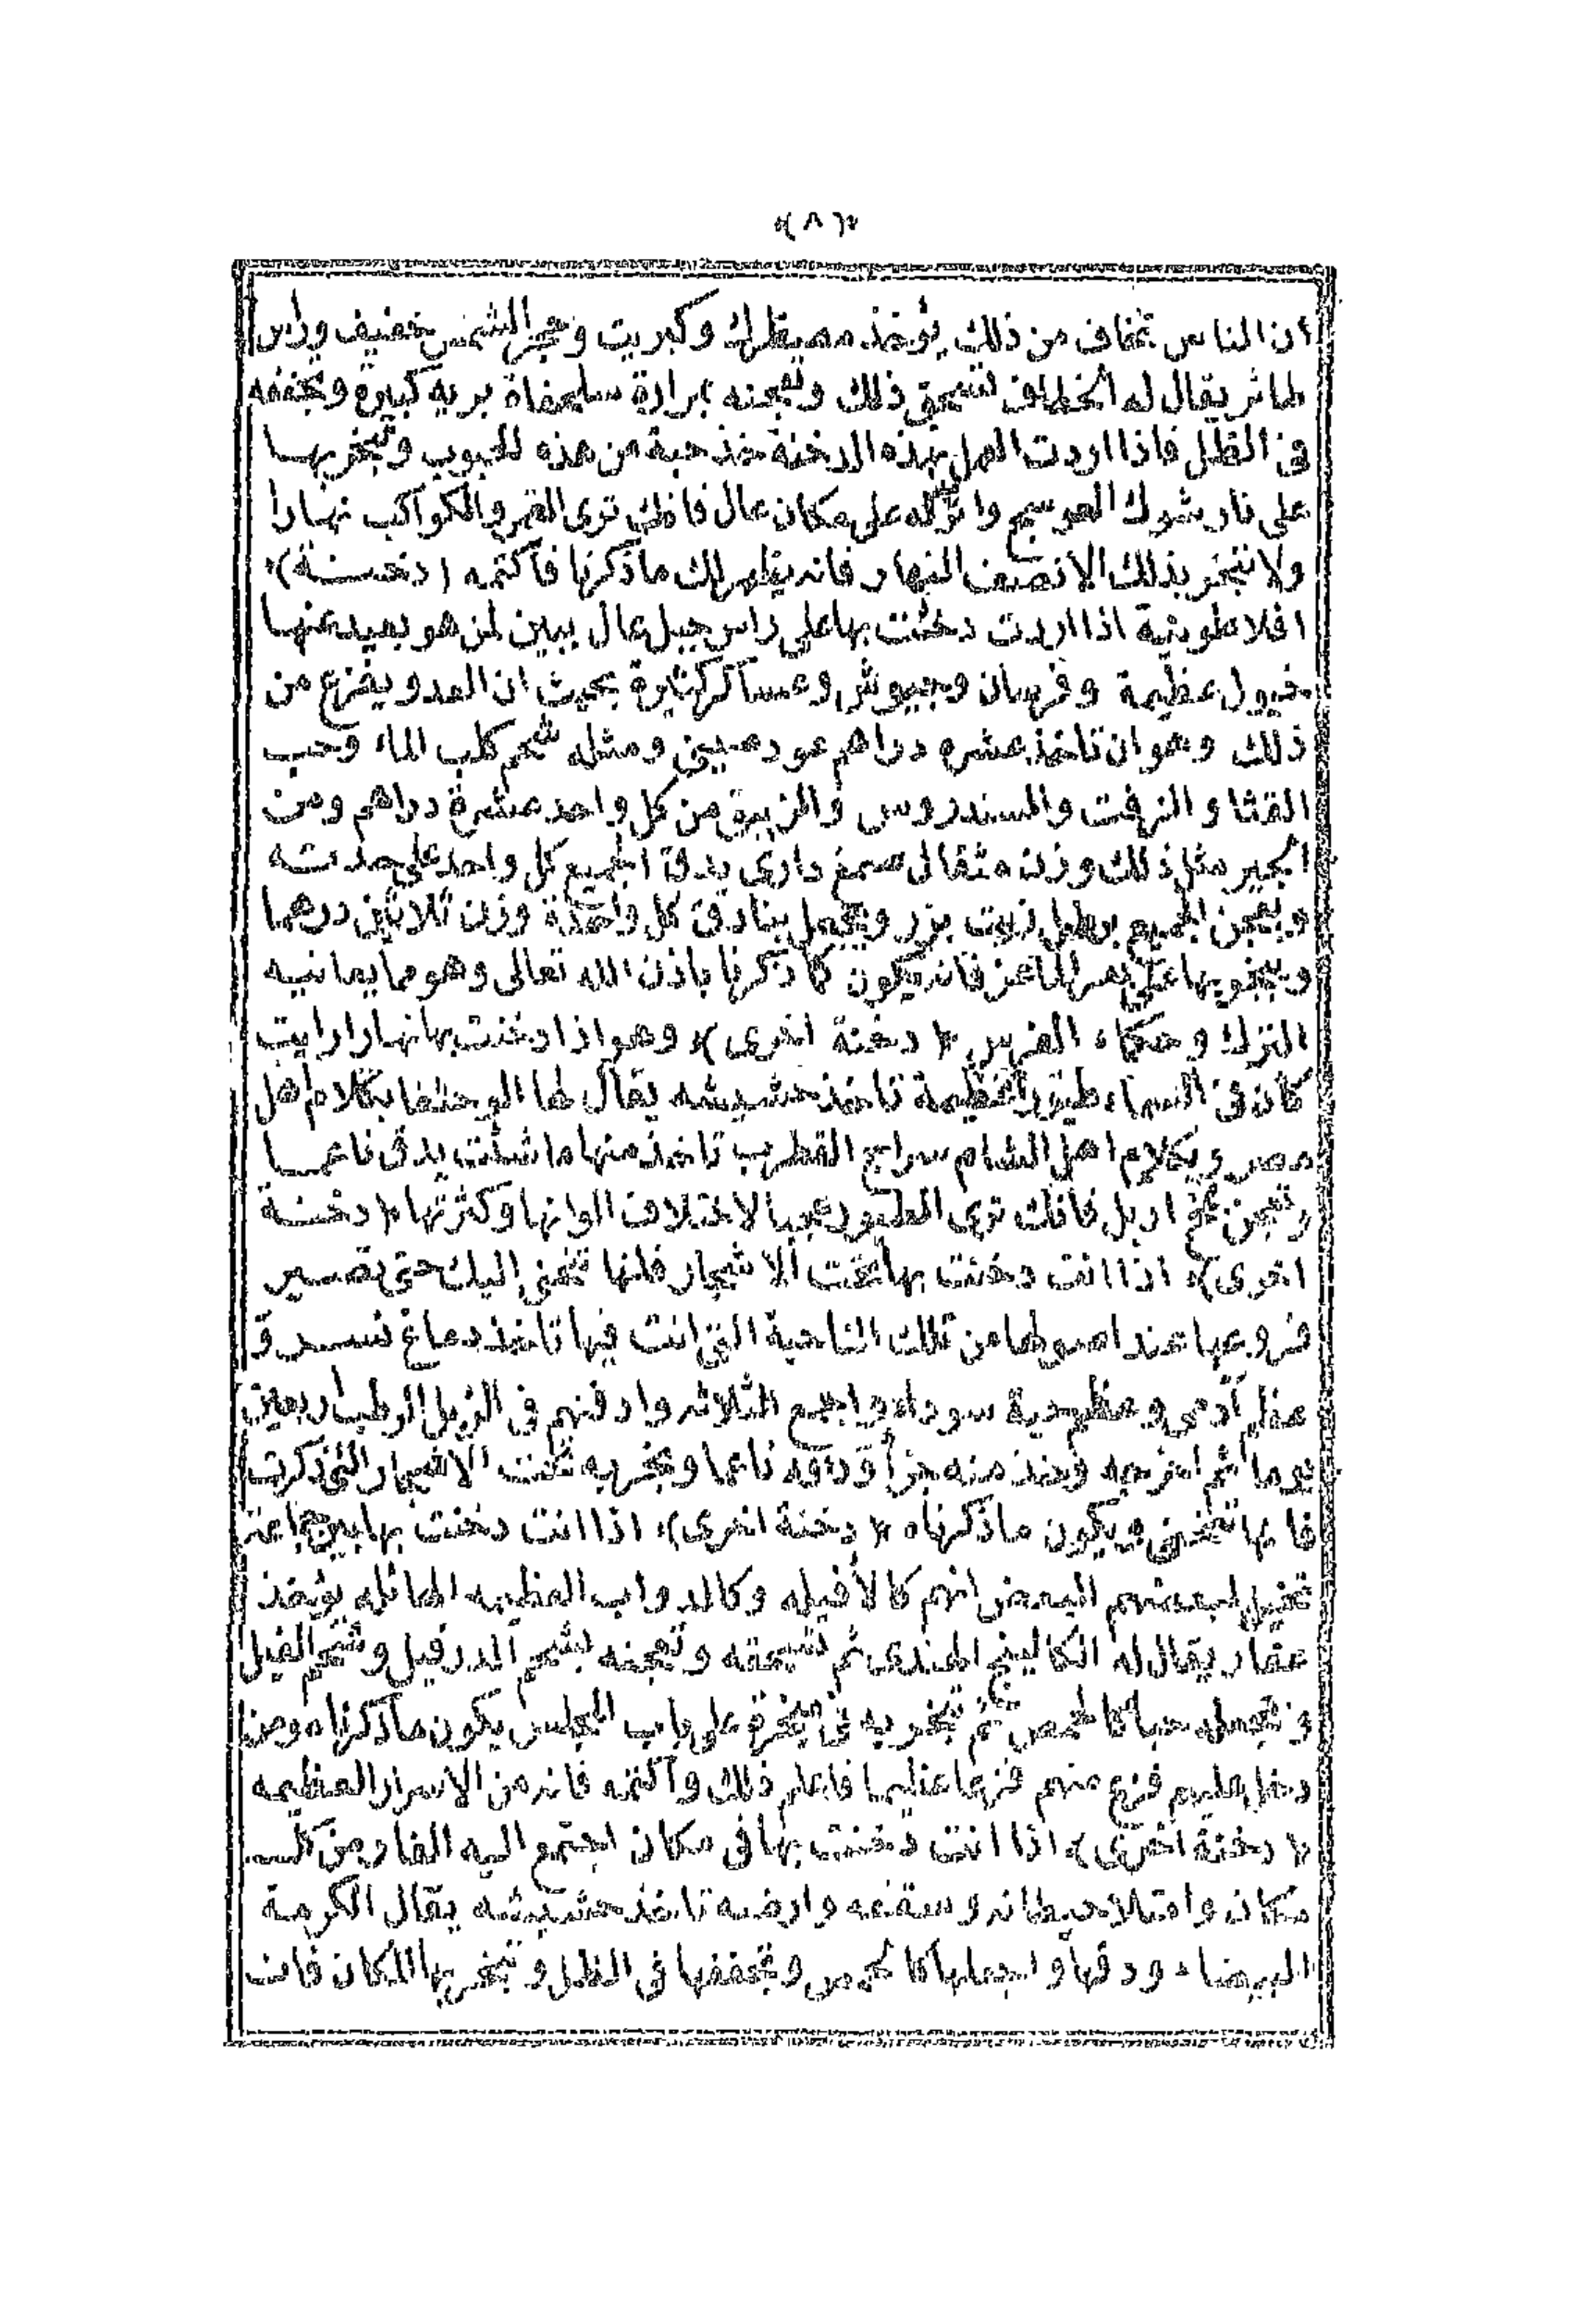 ﴿٨﴾
ان الناس تخاف من ذلك يؤخذ مصيطرك وكبريت وحجر الشمس خفيف وراس
طائر يقال له الخطاف تسحق ذلك وتعجنه بمرارة سلحفاة بريه كبيرة وتجففه
فى الظل فاذا اردت العمل بهذه الدخنة خذ حبة من هذه الحبوب وتبخر بهــا
على نار شوك العوسج واتركه على مكان عال فانك ترى القمر والكواكب نهـارا
ولا تتبخر بذلك الا نصف النهار فانه يظهر لك ما ذكرنا فاكتمه (دخــنــة)
افلاطونية اذا اردت دخنت بها على راس جبل عال يبين لمن هو بعيد عنهــا
خيول عظيمة وفرسان وجيوش وعساكر كثيرة بحيث ان العدو يفزع من
ذلك وهو ان تاخذ عشره دراهم عود صينى ومثله شحم كلب الماء وحب
القثا و الزفت والسندروس والزيبق من كل واحد عشرة دراهم ومن
الجير مثل ذلك وزن مثقال صمغ دارى يدق الجميع كل واحد على حدتــه
ويعجن الجميع برطل زيت بزر ويجعل بنادق كل واحدة وزن ثلاثين درهما
ويبخر بها على بعر الماعز فانه يكون كما ذكرنا باذن الله تعالى وهو مما يعانيه
الترك وحكماء الفرس ﴿دخنة اخرى﴾ وهو اذا دخنت بها نهارا رايت
كان فى السماء طيورا عظيمة تاخذ حشيشه يقال لها اليحثفا بكلام اهل
مصر وبكلام اهل الشام سراج القطرب تاخذ منها ما شئت يدق ناعمــا
وتعجن بمخ اربل فانك ترى الطيور عجبا لاختلاف الوانها وكثرتها ﴿دخنــة
اخرى﴾ اذا انت دخنت بها تحت الاشجار فانها تنحنى اليك حتى تصــير
فروعها عند اصولها من تلك الناحية التى انت فيها تاخذ دماغ نســر و
عظم آدمى وعظم حية سوداء واجمع الثلاثه وادفنهم فى الزبل الرطب اربعين
يوما ثم اخرجه وخذ منه جزأ ودقه ناعما وبخر به تحت الاشجار التى ذكرت
فانها تنحنى ويكون ما ذكرناه ﴿دخنة اخرى﴾ اذا انت دخنت بها بين جماعة
تخيل لبعضهم البعض انهم كالافيله وكالدواب العظيمه الهائله يؤخذ
عقار يقال له الكالينج الهندى ثم تسحقه وتعجنه بشحم الدرفيل وشحم الفيل
وتجعله حبا كالحمص ثم تبخر به فى مبخرة على باب المجلس يكون ما ذكرناه ومن
دخل عليهم فزع منهم فزعا عظيما فاعلم ذلك واكتمه فانه من الاسرار العظيمه
﴿دخنة اخرى﴾ اذا انت دخنت بها فى مكان اجتمع اليه الفار من كــل
مكان وامتلا حيطانه وسقفه وارضه تاخذ حشيشه يقال الكرمة
البيضاء ودقها واجعلها كالحمص وتجففها فى الظل وتبخر بها المكان فان